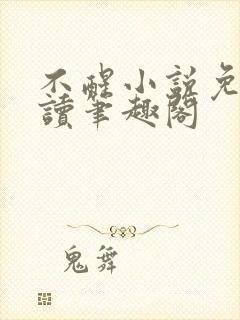 不醒小説免
讀筆趣閣
鬼舞